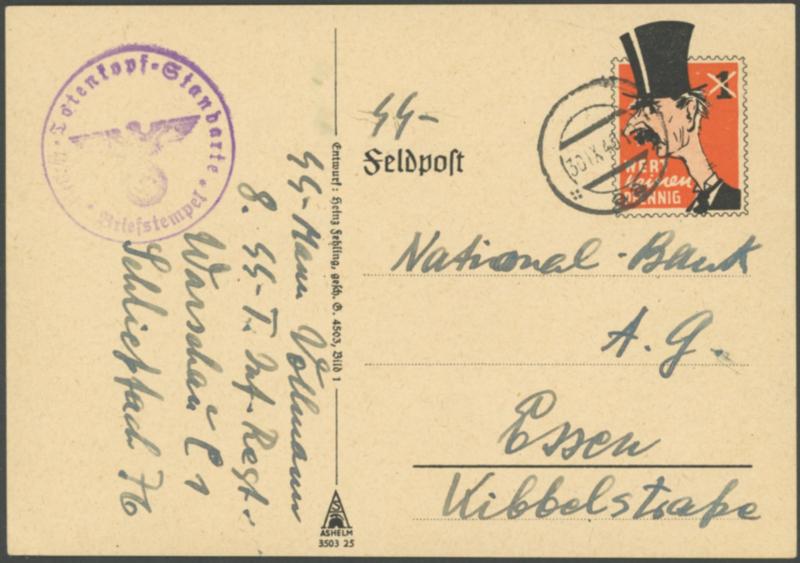 Totenkopf-Standarte
Briefstempel
SS-Mann Vollmann
8. SS-T. Inf. Regt.
Warschau C 1
Schließfach 76
Entwurf: Heinz Fehling, gesch. G. 4503, Bild 1
ASHELM
3503 25
SS-
Feldpost
30.IX.40
1
WERT
keinen
PFENNIG
National-Bank
A.G.
Essen
Kibbelstraße